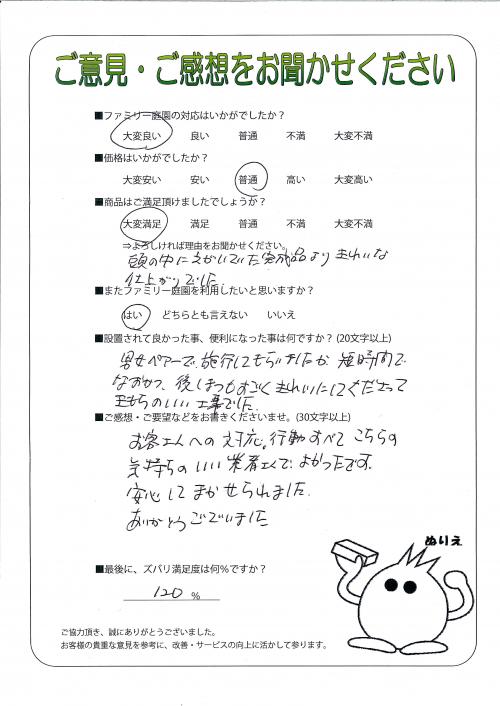 ご意見・ご感想をお聞かせください
■ファミリー庭園の対応はいかがでしたか？
大変良い 良い 普通 不満 大変不満
■価格はいかがでしたか？
大変安い 安い 普通 高い 大変高い
■商品はご満足頂けましたでしょうか？
大変満足 満足 普通 不満 大変不満
⇒よろしければ理由をお聞かせください。
頭の中にえがいていた完成品よりきれいな
仕上がりでした
■またファミリー庭園を利用したいと思いますか？
はい どちらとも言えない いいえ
■設置されて良かった事、便利になった事は何ですか？(20文字以上)
男女ペアーで、施行してもらいましたが 短時間で
なおかつ、後しまつもすごくきれいにしてくださって
きもちのいい工事でした
■ご感想・ご要望などをお書きくださいませ。(30文字以上)
お客さんへの対応。行動すべてこちらの
気持ちのいい業者さんでよかったです。
安心してまかせられました。
ありがとうございました
ぬりえ
■最後に、ズバリ満足度は何％ですか？
120 ％
ご協力頂き、誠にありがとうございました。
お客様の貴重な意見を参考に、改善・サービスの向上に活かして参ります。